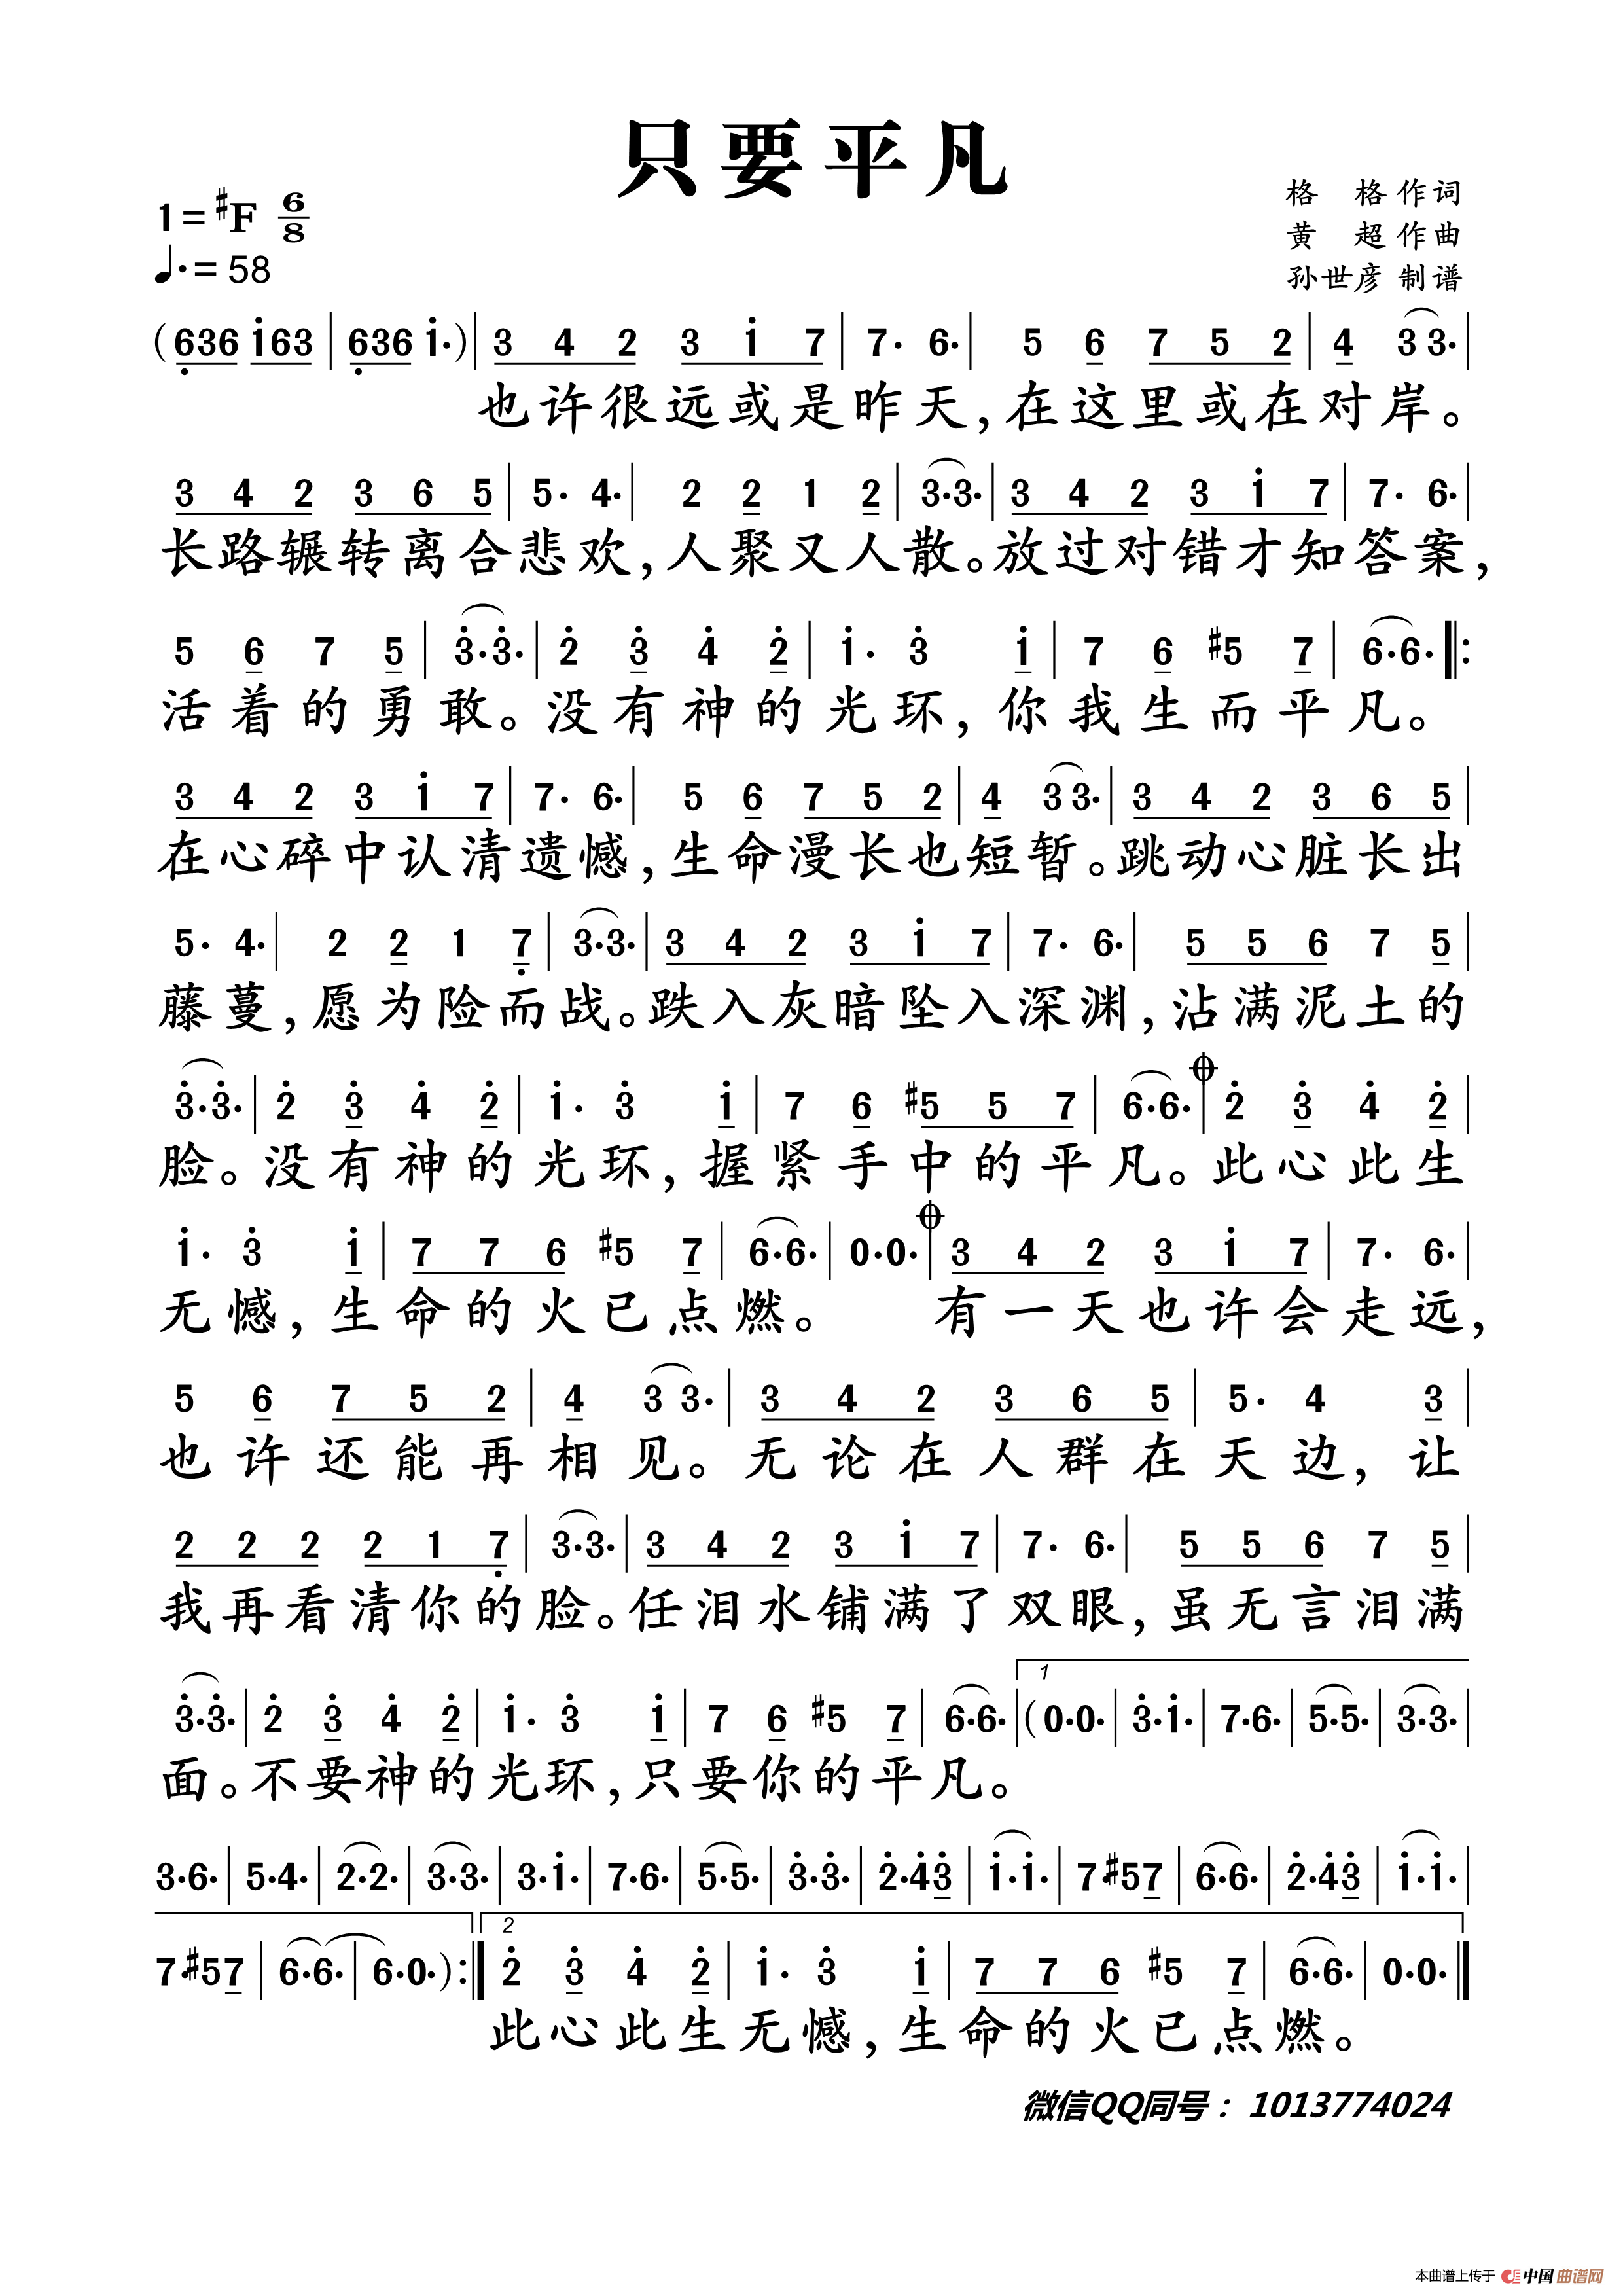 只要平凡
1=#F 6/8
♩.=58
格 格作词
黄 超作曲
孙世彦 制谱
(636 i63|636 i·)|3 4 2 3 i 7|7· 6·|5 6 7 5 2|4 3 3·|
也许很远或是昨天,在这里或在对岸。
3 4 2 3 6 5|5· 4·|2 2 1 2|3·3·|3 4 2 3 i 7|7· 6·|
长路辗转离合悲欢,人聚又人散。放过对错才知答案,
5 6 7 5|3·3·|2 3 4 2|i· 3 i|7 6 #5 7|6·6·‖:
活着的勇敢。没有神的光环,你我生而平凡。
3 4 2 3 i 7|7· 6·|5 6 7 5 2|4 3 3·|3 4 2 3 6 5|
在心碎中认清遗憾,生命漫长也短暂。跳动心脏长出
5· 4·|2 2 1 7|3·3·|3 4 2 3 i 7|7· 6·|5 5 6 7 5|
藤蔓,愿为险而战。跌入灰暗坠入深渊,沾满泥土的
3·3·|2 3 4 2|i· 3 i|7 6 #5 5 7|6·6·|2 3 4 2|
脸。没有神的光环,握紧手中的平凡。此心此生
i· 3 i|7 7 6 #5 7|6·6·|0·0·|3 4 2 3 i 7|7· 6·|
无憾,生命的火已点燃。 有一天也许会走远,
5 6 7 5 2|4 3 3·|3 4 2 3 6 5|5· 4 3|
也许还能再相见。无论在人群在天边,让
2 2 2 2 1 7|3·3·|3 4 2 3 i 7|7· 6·|5 5 6 7 5|
我再看清你的脸。任泪水铺满了双眼,虽无言泪满
1
3·3·|2 3 4 2|i· 3 i|7 6 #5 7|6·6·|(0·0·|3·i·|7·6·|5·5·|3·3·|
面。不要神的光环,只要你的平凡。
3·6·|5·4·|2·2·|3·3·|3·i·|7·6·|5·5·|3·3·|2·43|i·i·|7·#57|6·6·|2·43|i·i·|
2
7·#57|6·6·|6·0·):‖2 3 4 2|i· 3 i|7 7 6 #5 7|6·6·|0·0·‖
此心此生无憾,生命的火已点燃。
微信QQ同号:1013774024
本曲谱上传于 中国曲谱网